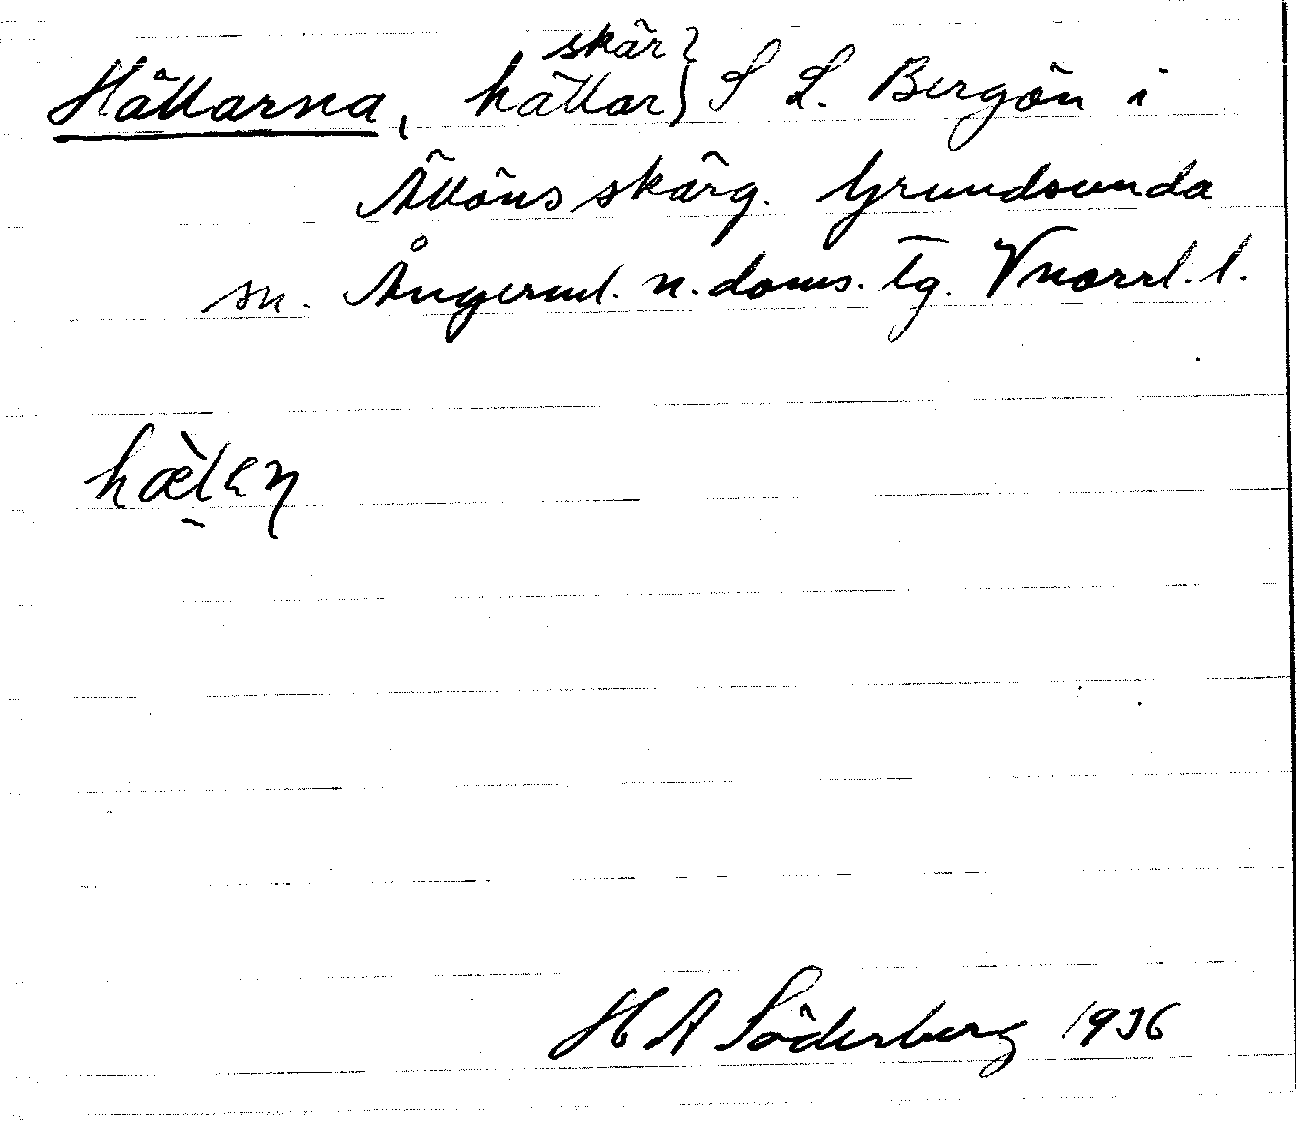 skär?
Hällarna, hällar) S L. Bergön i
Ällöns skärg. Grundsunda
sn. Ångerml. n. doms. tg. Vnorrl. l.
hælen
H A Söderberg 1936